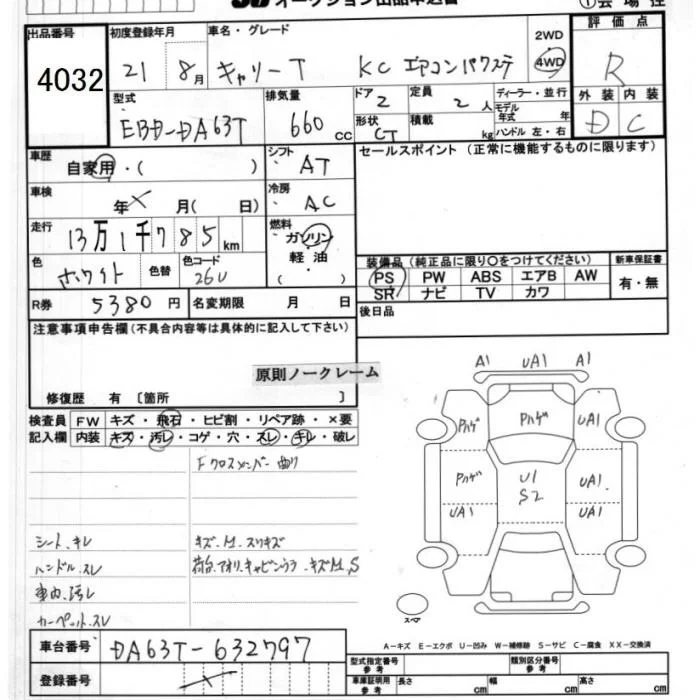 オークション出品申込書
出品番号 4032
初度登録年月 21 8月
車名・グレード キャリーT KC エアコンパワステ
2WD 4WD
評価点 R
外装 D 内装 C
型式 EBD-DA63T
排気量 660cc
ドア 2
定員 2人
形状 CT
積載 kg
ディーラー・並行
モデル年式 年式
ハンドル 左・右
車歴 自家用・( )
シフト AT
セールスポイント (正常に機能するものに限ります)
車検 年×月( 日)
冷房 AC
走行 13万1千785km
燃料 ガソリン・軽油・( )
色 ホワイト 色替
色コード 26U
装備品 (純正品に限り○をつけてください)
PS PW ABS エアB AW
SR ナビ TV カワ
新車保証書 有・無
R券 5380円
名変期限 月 日
後日品
注意事項申告欄(不具合内容等は具体的に記入して下さい)
原則ノークレーム
修復歴 有 〔箇所 〕
検査員記入欄
FW キズ・飛石・ヒビ割・リペア跡・×要
内装 キズ・汚レ・コゲ・穴・スレ・キレ・破レ
Fクロスメンバー曲り
シート.キレ
キズ.M.スリキズ
ハンドル.スレ
荷台.アオリ.キャビンウラ.キズM.S
車内.汚レ
カーペット.スレ
A1 UA1 A1
Pハゲ Pハゲ UA1
Pハゲ U1 S2 UA1
UA1 UA1
スペア
A－キズ E－エクボ U－凹み W－補修跡 S－サビ C－腐食 XX－交換済
車台番号 DA63T-632797
登録番号 ×
型式指定番号 参考
類別区分番号 参考
車庫証明用 参考 長さ cm 幅 cm 高さ cm